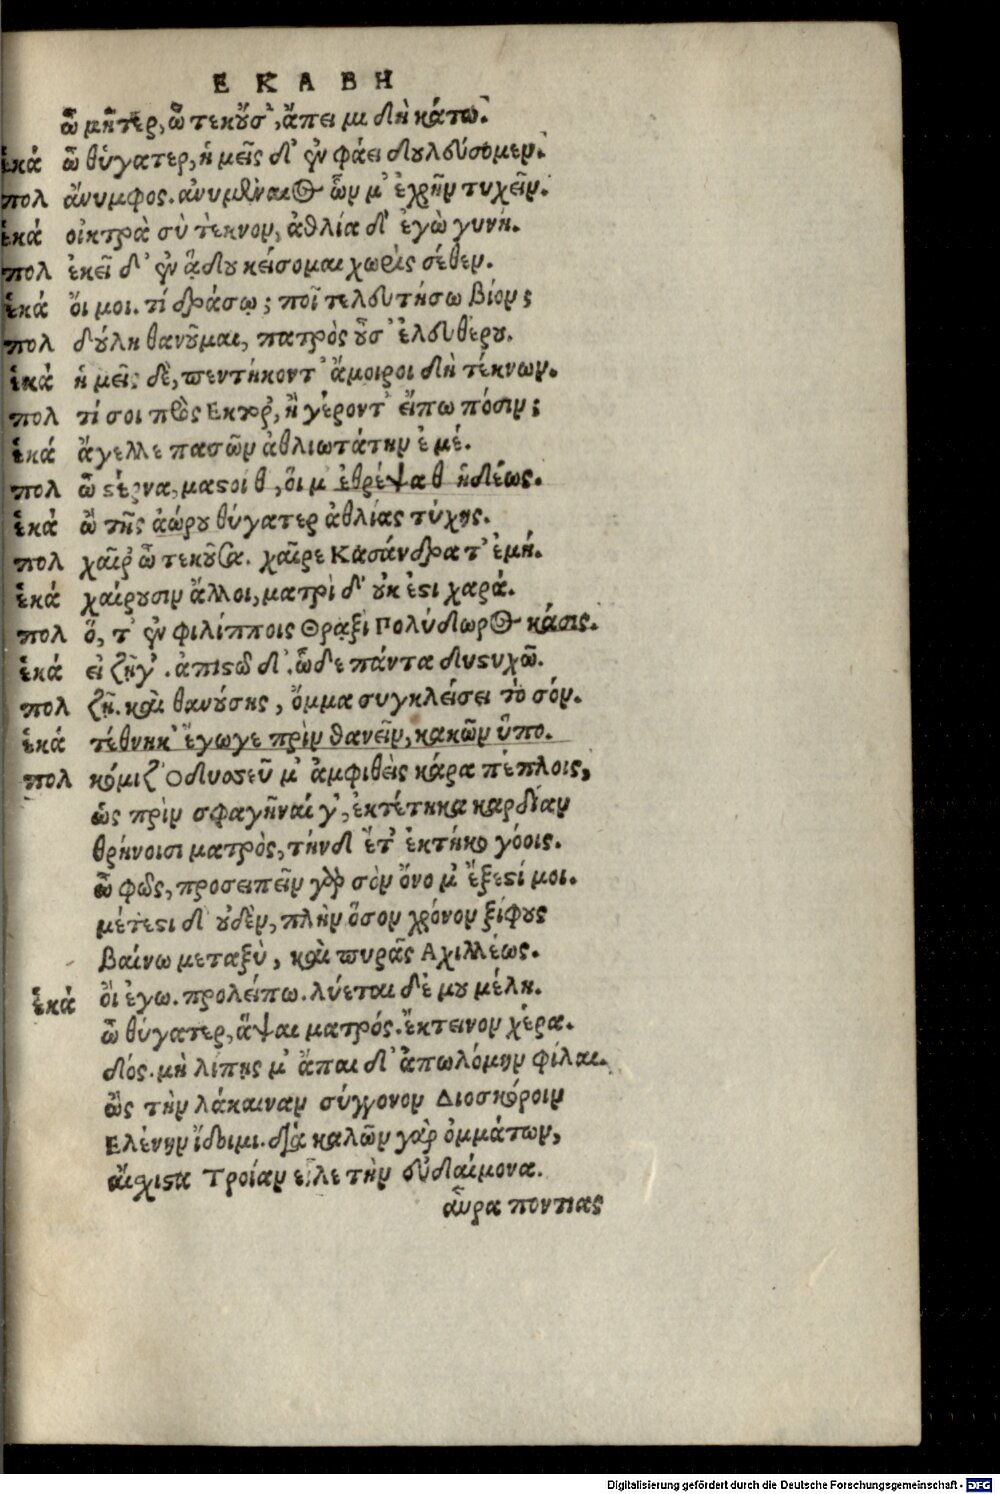 ΕΚΑΒΗ
ὦ μῆτερ, ὦ τεκοῦσ', ἄπειμι δὴ κάτω.
ἑκά ὦ θύγατερ, ἡμεῖς δ' ἐν φάει δουλεύσομεν.
πολ ἄνυμφος. ἀνυμέναιος ὧν μ' ἐχρῆν τυχεῖν.
ἑκά οἰκτρὰ σὺ τέκνον, ἀθλία δ' ἐγὼ γυνή.
πολ ἐκεῖ δ' ἐν ᾅδου κείσομαι χωρὶς σέθεν.
ἑκά ὄι μοι. τί δράσω; ποῖ τελευτήσω βίον;
πολ δούλη θανοῦμαι, πατρὸς οὖσ' ἐλευθέρου.
ἑκά ἡμεῖς δὲ, πεντήκοντ' ἄμοιροι δὴ τέκνων.
πολ τί σοι πρὸς Εκτορ', ἢ γέροντ' εἴπω πόσιν;
ἑκά ἄγελλε πασῶν ἀθλιωτάτην ἐμέ.
πολ ὦ στέρνα, μαστοί θ', οἵ μ' ἐθρέψαθ' ἡδέως.
ἑκά ὦ τῆς ἀώρου θύγατερ ἀθλίας τύχης.
πολ χαῖρ' ὦ τεκοῦσα. χαῖρε Κασάνδρα τ' ἐμή.
ἑκά χαίρουσιν ἄλλοι, ματρὶ δ' οὐκ ἔστι χαρά.
πολ ὅ, τ' ἐν φιλίπποις Θρᾳξὶ Πολύδωρος κάσις.
ἑκά εἰ ζῇ γ'. ἀπιστῶ δ'. ὧδε πάντα δυστυχῶ.
πολ ζῇ. καὶ θανούσης, ὄμμα συγκλείσει τὸ σόν.
ἑκά τέθνηκ' ἔγωγε πρὶν θανεῖν, κακῶν ὕπο.
πολ κόμιζ' Οδυσσεῦ μ' ἀμφιθεὶς κάρα πέπλοις,
ὡς πρὶν σφαγῆναί γ', ἐκτέτηκα καρδίαν
θρήνοισι ματρὸς, τήνδ' ἔτ' ἐκτήκω γόοις.
ὦ φῶς, προσειπεῖν γὰρ σὸν ὄνομ' ἔξεστί μοι.
μέτεστι δ' οὐδὲν, πλὴν ὅσον χρόνον ξίφους
βαίνω μεταξὺ, καὶ πυρᾶς Αχιλλέως.
ἑκά ὄι ἐγω. προλείπω. λύεται δέ μου μέλη.
ὦ θύγατερ, ἅψαι ματρός. ἔκτεινον χέρα.
δός. μὴ λίπῃς μ' ἄπαιδ' ἀπωλόμην φίλαι.
ὣς τὴν λάκαιναν σύγγονον Διοσκόροιν
Ελένην ἴδοιμι. διὰ καλῶν γὰρ ὀμμάτων,
αἴσχιστα Τροίαν εἷλε τὴν εὐδαίμονα.
αὔρα ποντιας
Digitalisierung gefördert durch die Deutsche Forschungsgemeinschaft - DFG